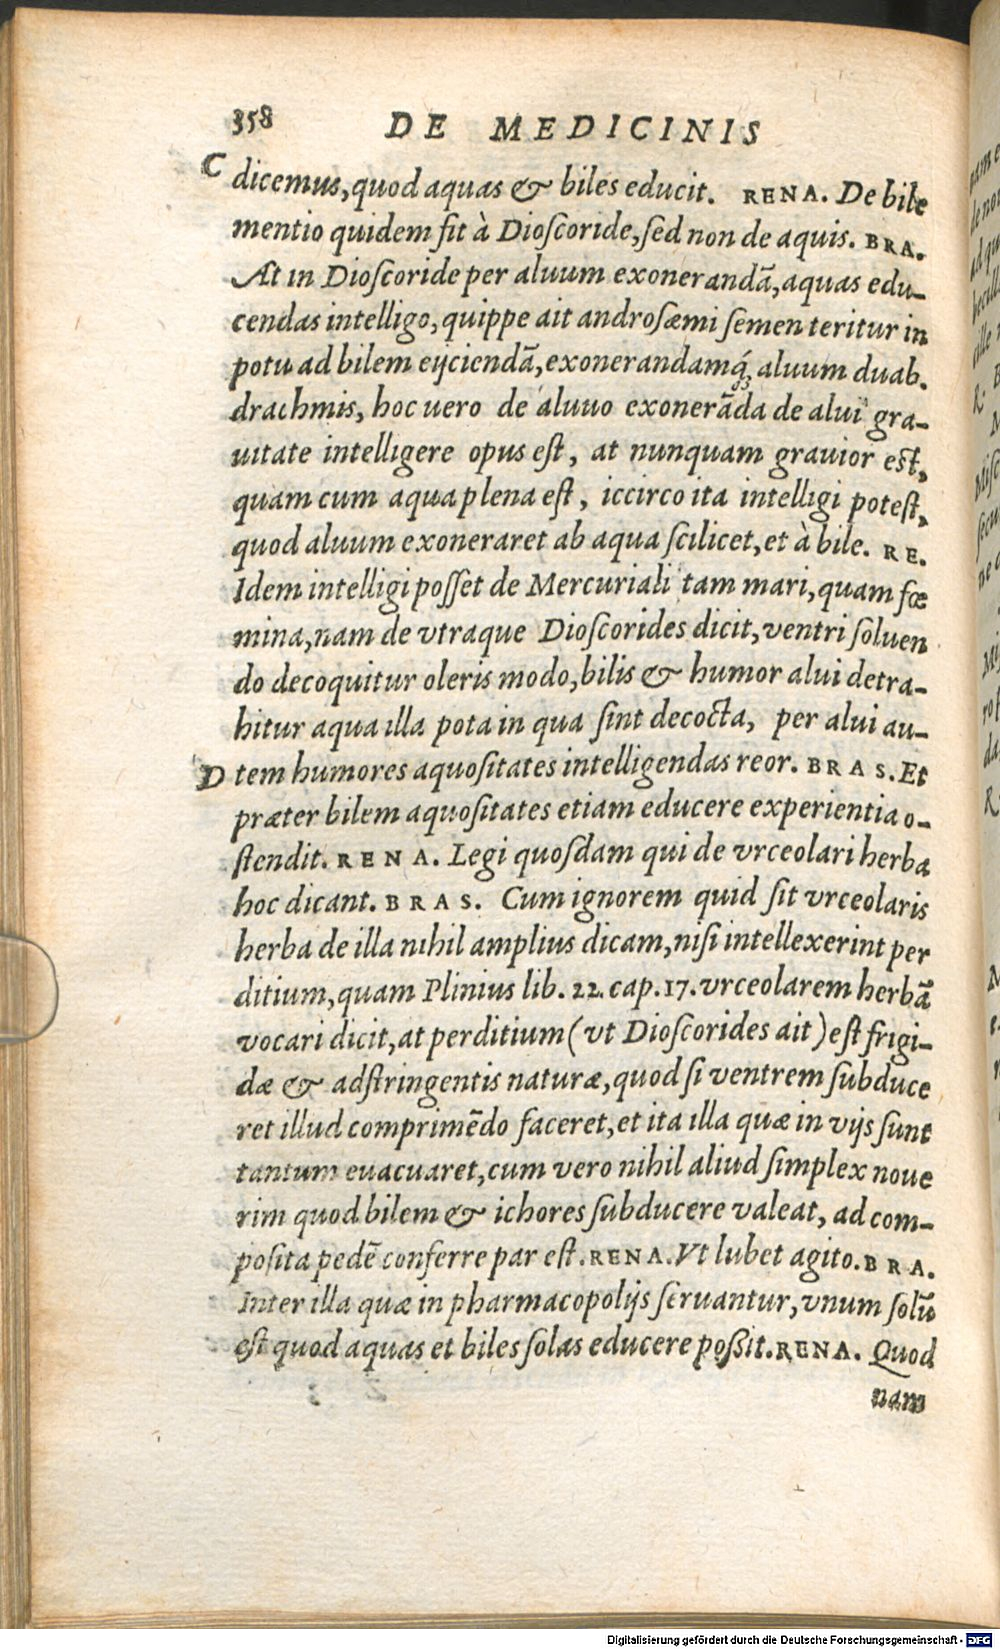 358 DE MEDICINIS
C dicemus, quod aquas & biles educit. RENA. De bile
mentio quidem fit à Dioſcoride, ſed non de aquis. BRA.
At in Dioſcoride per aluum exonerandā, aquas edu-
cendas intelligo, quippe ait androſæmi ſemen teritur in
potu ad bilem eijciendā, exonerandamq́; aluum duab.
drachmis, hoc uero de aluuo exonerāda de alui gra-
uitate intelligere opus eſt, at nunquam grauior eſt,
quam cum aqua plena eſt, iccirco ita intelligi poteſt,
quod aluum exoneraret ab aqua ſcilicet, et à bile. RE.
Idem intelligi poſſet de Mercuriali tam mari, quam fœ
mina, nam de vtraque Dioſcorides dicit, ventri ſoluen
do decoquitur oleris modo, bilis & humor alui detra-
hitur aqua illa pota in qua ſint decocta, per alui au-
D tem humores aquoſitates intelligendas reor. BRAS. Et
præter bilem aquoſitates etiam educere experientia o-
ſtendit. RENA. Legi quoſdam qui de vrceolari herba
hoc dicant. BRAS. Cum ignorem quid ſit vrceolaris
herba de illa nihil amplius dicam, niſi intellexerint per
ditium, quam Plinius lib. 22. cap. 17. vrceolarem herbā
vocari dicit, at perditium (vt Dioſcorides ait) eſt frigi-
dæ & adſtringentis naturæ, quod ſi ventrem ſubduce
ret illud comprimēdo faceret, et ita illa quæ in vijs ſunt
tantum euacuaret, cum vero nihil aliud ſimplex noue
rim quod bilem & ichores ſubducere valeat, ad com-
poſita pedē conferre par eſt. RENA. Vt lubet agito. BRA.
Inter illa quæ in pharmacopolijs ſeruantur, vnum ſolū
eſt quod aquas et biles ſolas educere poßit. RENA. Quod
nam
Digitalisierung gefördert durch die Deutsche Forschungsgemeinschaft - DFG